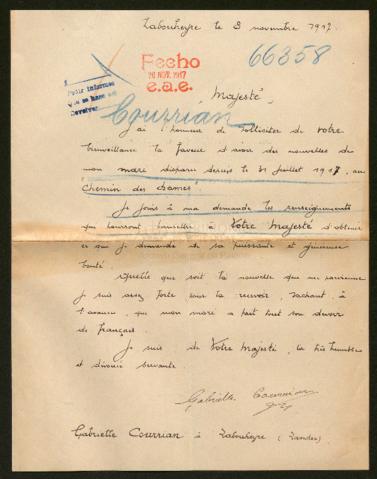 Labouheyre le 8 novembre 1917.
66358
Fecho
20 NOV. 1917
e.a.e.
Pedir informes
que se hace en
Devolver
Majesté,
Courrian
J'ai l'honneur de solliciter de votre
bienveillance la faveur d'avoir des nouvelles de
mon mari disparu depuis le 31 juillet 1917, au
Chemin des Dames.
Je joins à ma demande les renseignements
qui pourront permettre à Votre Majesté d'obtenir
ce que je demande de sa puissante et généreuse
bonté.
Quelle que soit la nouvelle qui me parvienne
je suis assez forte pour la recevoir, sachant, à
l'avance, que mon mari a fait tout son devoir
de français.
Je suis de Votre Majesté, la très humble
et dévouée servante
Gabrielle Courrian
Gabrielle Courrian à Labouheyre (Landes)